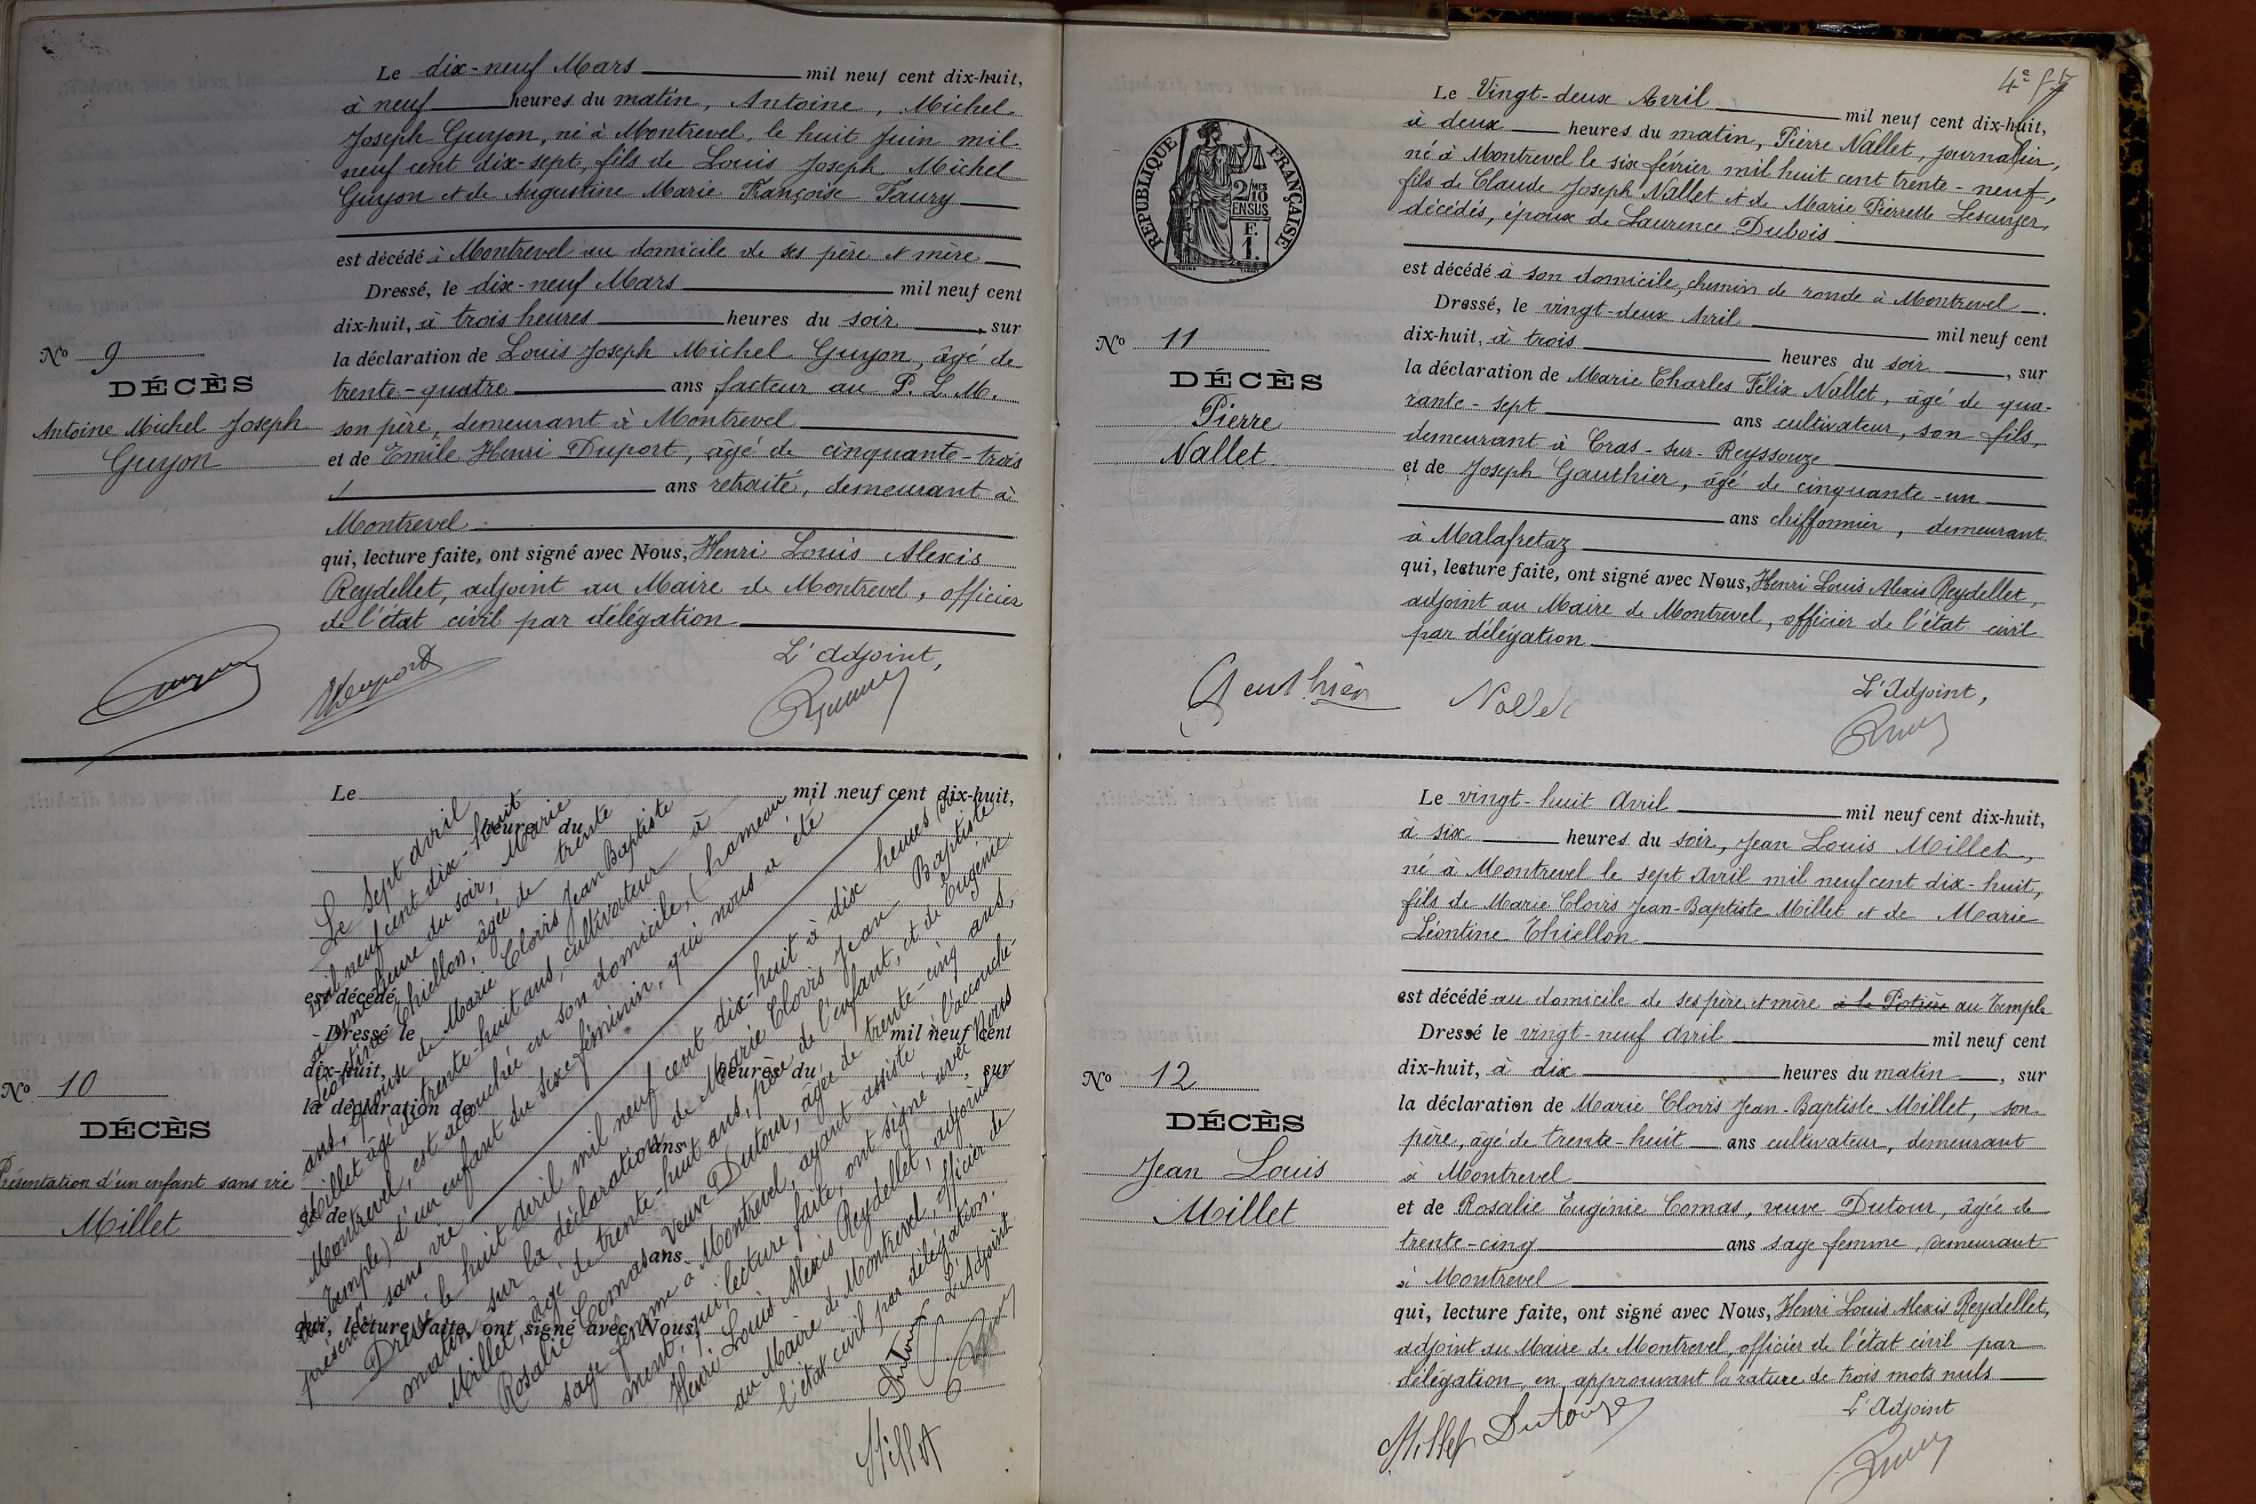 Le dix-neuf Mars mil neuf cent dix-huit,
à neuf heures du matin, Antoine, Michel
Joseph Guyon, né à Montrevel, le huit Juin mil
neuf cent dix-sept, fils de Louis Joseph Michel
Guyon et de Augustine Marie Françoise Faury
est décédé à Montrevel au domicile de ses père et mère
Dressé, le dix-neuf Mars mil neuf cent
dix-huit, à trois heures heures du soir, sur
la déclaration de Louis Joseph Michel Guyon, âgé de
trente-quatre ans facteur au P. L. M.
son père, demeurant à Montrevel
et de Emile Henri Duport, âgé de cinquante-trois
ans retraité, demeurant à
Montrevel
qui, lecture faite, ont signé avec Nous, Henri Louis Alexis
Reydellet, adjoint au Maire de Montrevel, officier
de l'état civil par délégation
L'adjoint,
Nº 9
DÉCÈS
Antoine Michel Joseph
Guyon
Guyon
Duport
Le mil neuf cent dix-huit,
heures du
est décédé
Dressé le mil neuf cent
dix-huit, heures du, sur
la déclaration de
ans
et de
ans
qui, lecture faite, ont signé avec Nous,
Le sept avril
mil neuf cent dix-huit
à une heure du soir, Marie
Léontine Thiellon, âgée de trente
ans, épouse de Marie Clovis Jean Baptiste
Millet âgé de trente-huit ans, cultivateur à
Montrevel, est accouchée en son domicile, (hameau
du Temple) d'un enfant du sexe féminin, qui nous a été
présenté sans vie
Dressé le huit avril mil neuf cent dix-huit à dix heures du
matin, sur la déclaration de Marie Clovis Jean Baptiste
Millet, âgé de trente-huit ans, père de l'enfant, et de Eugénie
Rosalie Comas veuve Dutour, âgée de trente-cinq ans,
sage femme à Montrevel, ayant assisté à l'accouche-
ment, qui, lecture faite, ont signé avec Nous
Henri Louis Alexis Reydellet, adjoint
au Maire de Montrevel, officier de
l'état civil par délégation.
L'Adjoint
Dutour
Millet
Nº 10
DÉCÈS
Présentation d'un enfant sans vie
Millet
4e
RÉPUBLIQUE FRANÇAISE
2/10
EN SUS
F.
1.
Le Vingt-deux Avril mil neuf cent dix-huit,
à deux heures du matin, Pierre Nallet, journalier,
né à Montrevel le six février mil huit cent trente-neuf,
fils de Claude Joseph Nallet et de Marie Pierrette Lescuyer,
décédés, époux de Laurence Dubois
est décédé à son domicile, chemin de ronde à Montrevel.
Dressé, le vingt-deux Avril mil neuf cent
dix-huit, à trois heures du soir, sur
la déclaration de Marie Charles Félix Nallet, âgé de qua-
rante-sept ans cultivateur, son fils,
demeurant à Cras-sur-Reyssouze
et de Joseph Gauthier, âgé de cinquante-un
ans chiffonnier, demeurant
à Malafretaz
qui, lecture faite, ont signé avec Nous, Henri Louis Alexis Reydellet,
adjoint au Maire de Montrevel, officier de l'état civil
par délégation
L'Adjoint,
Nº 11
DÉCÈS
Pierre
Nallet
Geuthier
Nallet
Le vingt-huit Avril mil neuf cent dix-huit,
à six heures du soir, Jean Louis Millet,
né à Montrevel le sept Avril mil neuf cent dix-huit,
fils de Marie Clovis Jean-Baptiste Millet et de Marie
Léontine Thiellon
est décédé au domicile de ses père et mère à la Potière au Temple
Dressé le vingt-neuf Avril mil neuf cent
dix-huit, à dix heures du matin, sur
la déclaration de Marie Clovis Jean-Baptiste Millet, son
père, âgé de trente-huit ans cultivateur, demeurant
à Montrevel
et de Rosalie Eugénie Comas, veuve Dutour, âgée de
trente-cinq ans sage femme, demeurant
à Montrevel
qui, lecture faite, ont signé avec Nous, Henri Louis Alexis Reydellet,
adjoint au Maire de Montrevel, officier de l'état civil par
délégation, en approuvant la rature de trois mots nuls
L'Adjoint
Nº 12
DÉCÈS
Jean Louis
Millet
Millet
Dutour